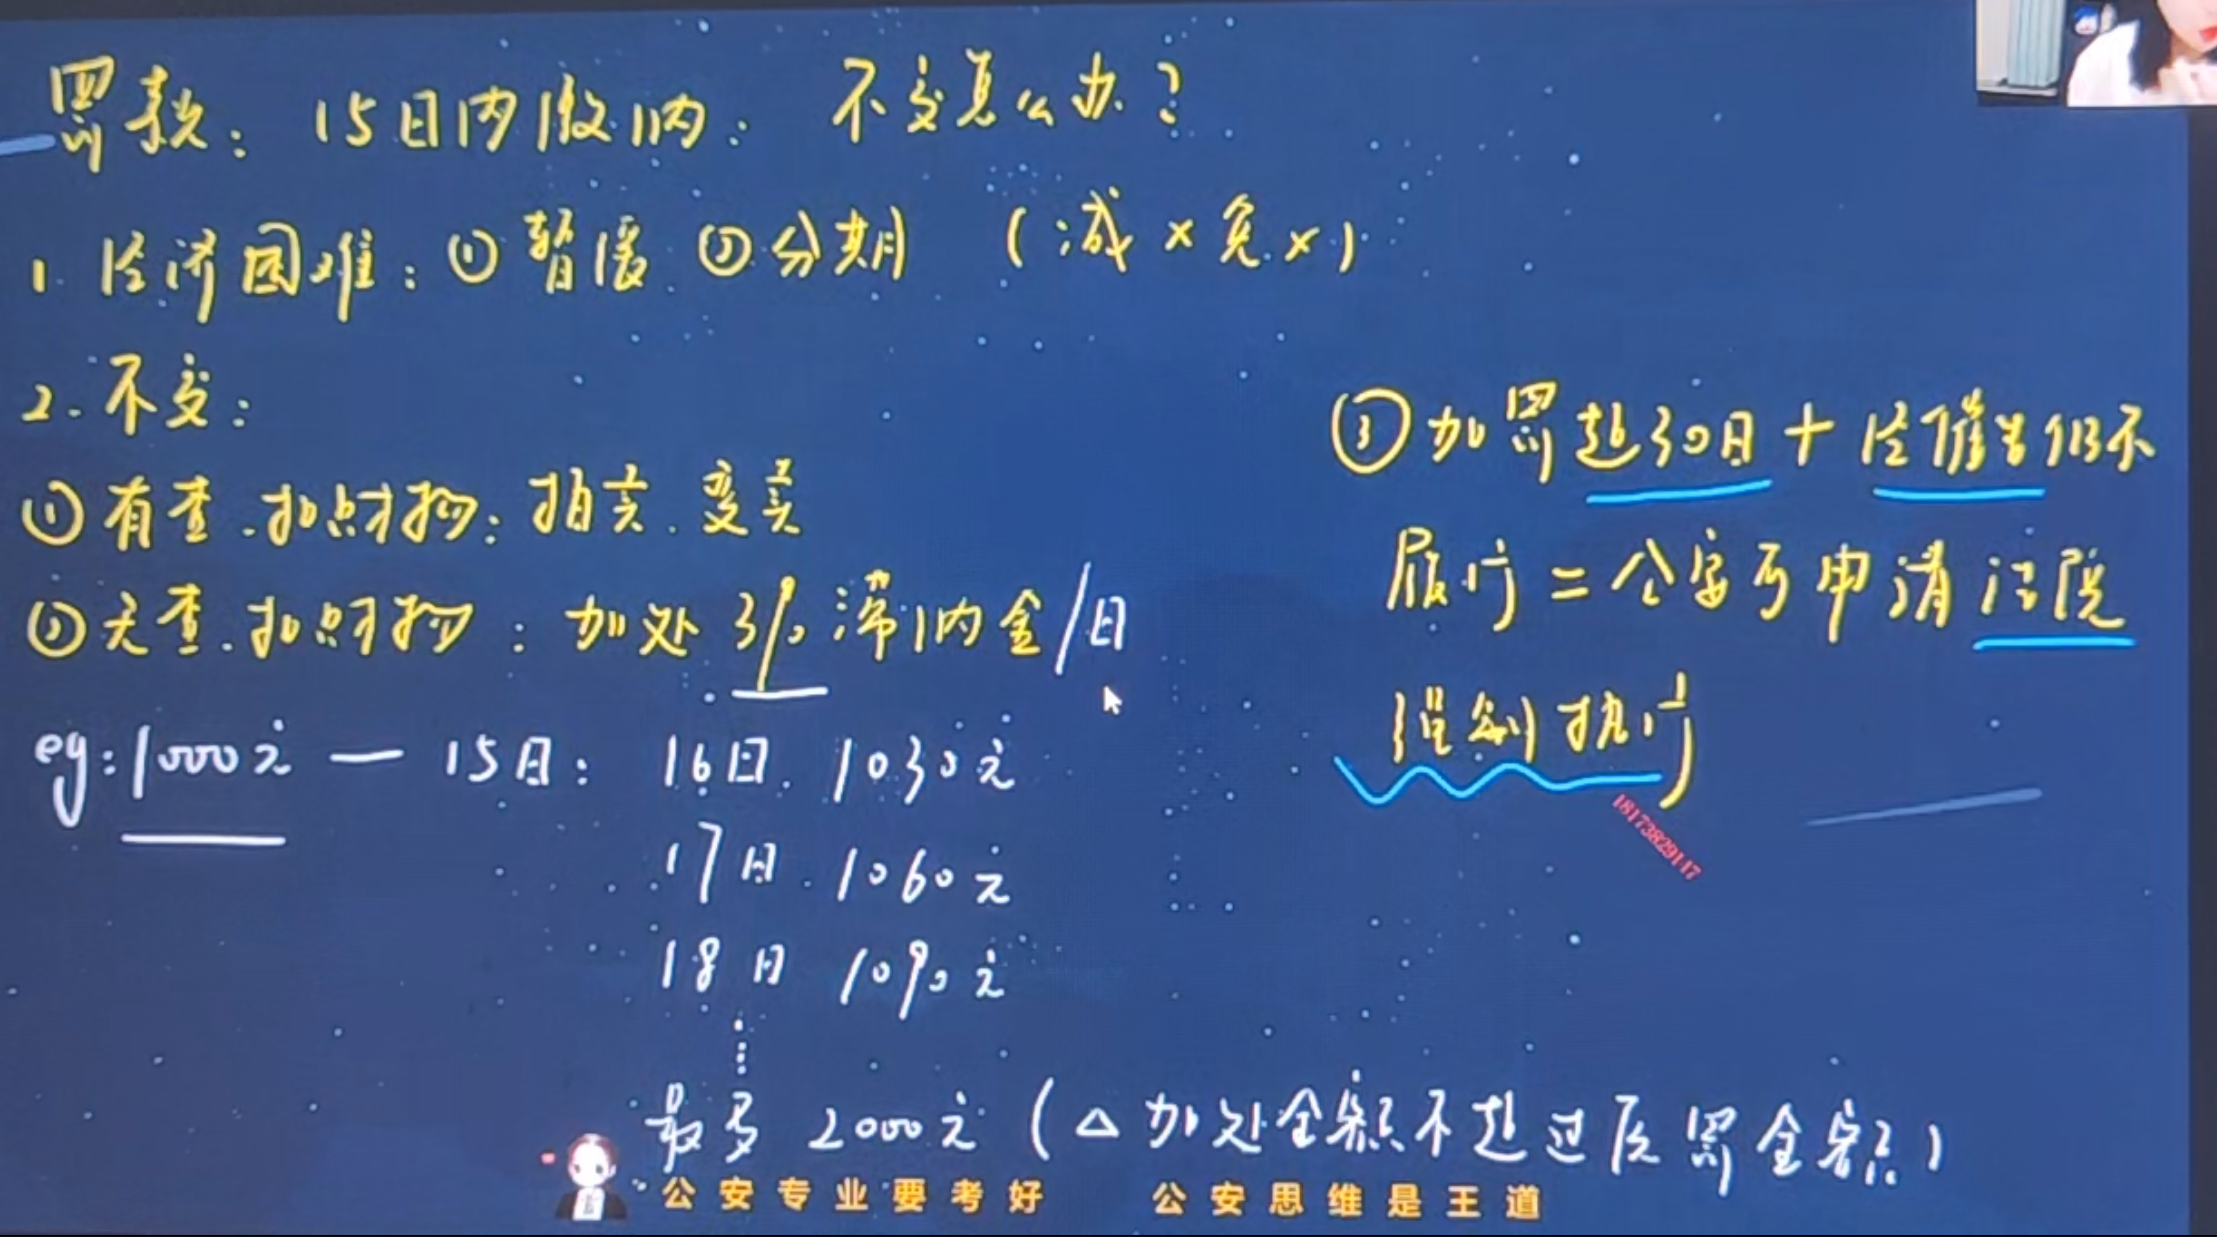 罚款：15日内缴纳. 不交怎么办？
1. 经济困难：① 暂缓. ② 分期 （减 × 免 ×）
2. 不交：
① 有查.扣财物：拍卖.变卖
② 无查.扣财物：加处 3% 滞纳金/日
eg: 1000元 — 15日： 16日. 1030元
17日. 1060元
18日 1090元
最多 2000元（△ 加处金额不超过原罚金额）
③ 加罚超30日 + 经催告仍不
履行 = 公安可申请法院
强制执行
18173829117
公安专业要考好 公安思维是王道